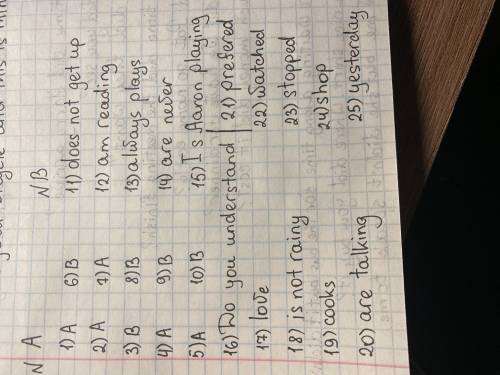 bicycle and this is
N A N B
1) A 6) B 11) does not get up
2) A 7) A 12) am reading
3) B 8) B 13) always plays
4) A 9) B 14) are never
5) A 10) B 15) Is Aaron playing
16) Do you understand | 21) prefered
17) love 22) watched
18) is not rainy 23) stopped
19) cooks 24) shop
20) are talking 25) yesterday